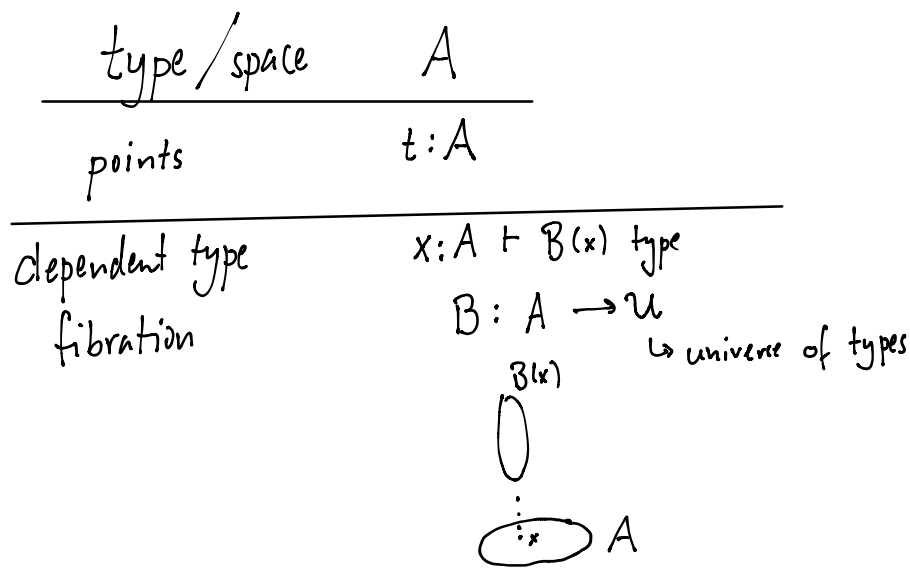 type/space A
points t : A
dependent type x : A ⊢ B(x) type
fibration B : A → U
↳ universe of types
B(x)
x A